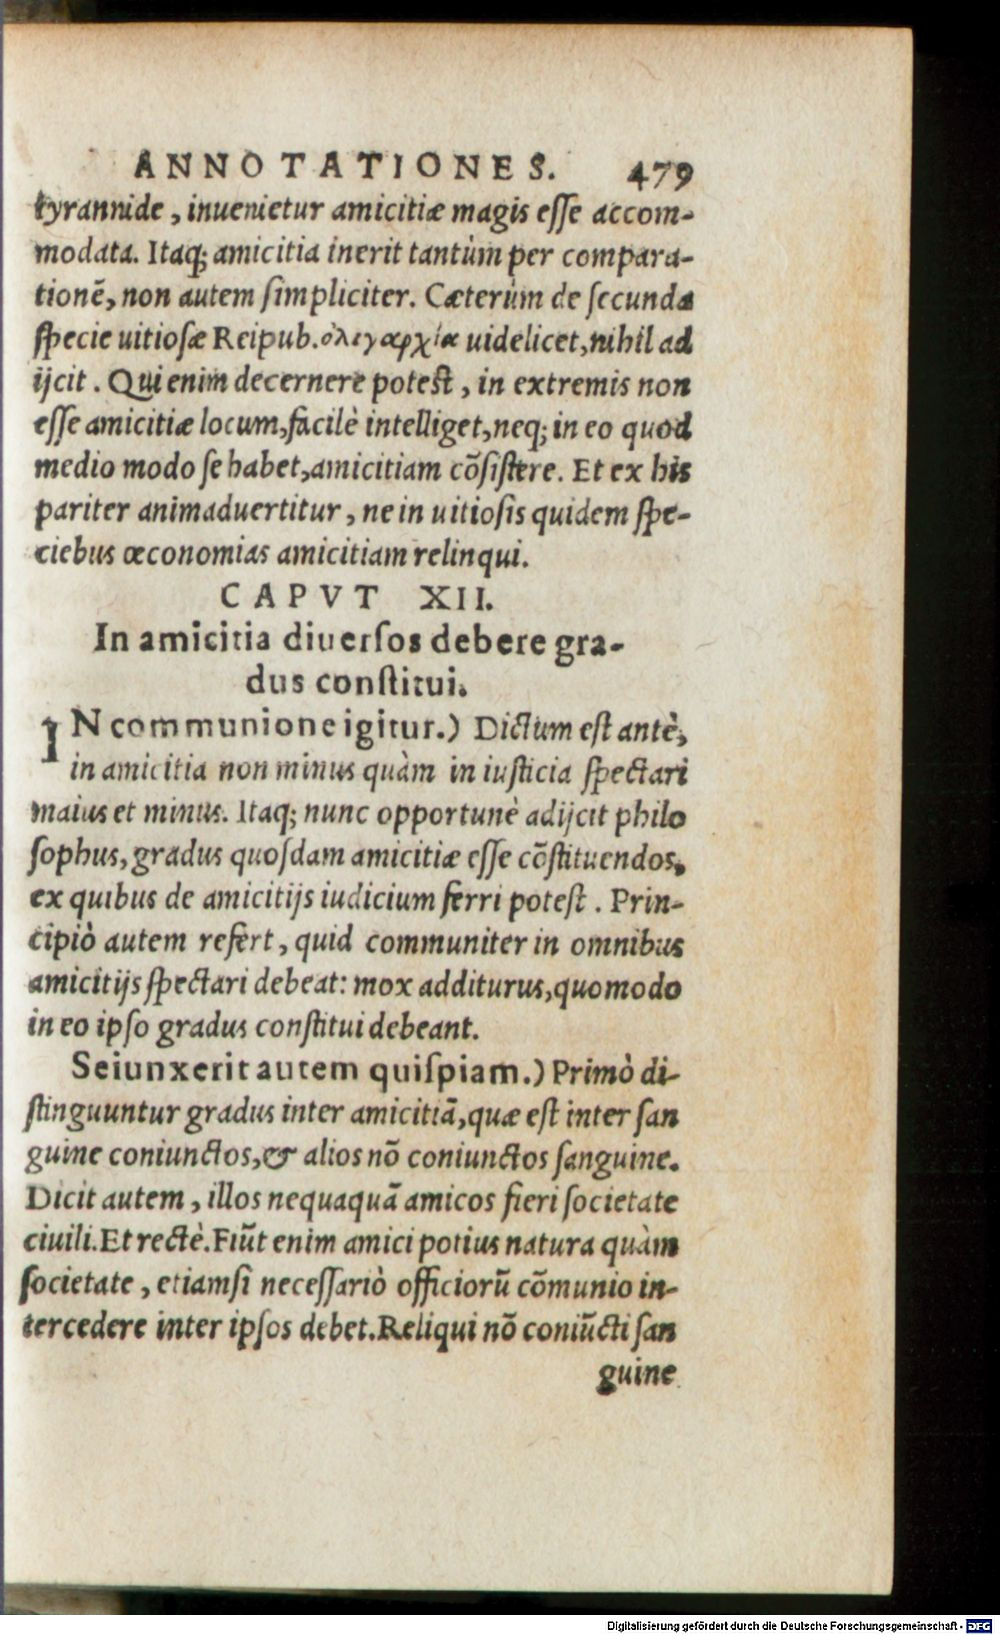 ANNOTATIONES. 479
tyrannide, inuenietur amicitiæ magis eſſe accom-
modata. Itaq; amicitia inerit tantùm per compara-
tionẽ, non autem ſimpliciter. Cæterùm de ſecunda
ſpecie uitioſæ Reipub. ὀλιγαρχία uidelicet, nihil ad
ijcit. Qui enim decernere poteſt, in extremis non
eſſe amicitiæ locum, facilè intelliget, neq; in eo quod
medio modo ſe habet, amicitiam cõſiſtere. Et ex his
pariter animaduertitur, ne in uitioſis quidem ſpe-
ciebus œconomias amicitiam relinqui.
CAPVT XII.
In amicitia diuerſos debere gra-
dus conſtitui.
IN communione igitur.) Dictum eſt antè,
in amicitia non minus quàm in iuſticia ſpectari
maius et minus. Itaq; nunc opportunè adijcit philo
ſophus, gradus quoſdam amicitiæ eſſe cõſtituendos,
ex quibus de amicitijs iudicium ferri poteſt. Prin-
cipiò autem refert, quid communiter in omnibus
amicitijs ſpectari debeat: mox additurus, quomodo
in eo ipſo gradus conſtitui debeant.
Seiunxerit autem quiſpiam.) Primò di-
ſtinguuntur gradus inter amicitiã, quæ eſt inter ſan
guine coniunctos, & alios nõ coniunctos ſanguine.
Dicit autem, illos nequaquã amicos fieri ſocietate
ciuili. Et rectè. Fiũt enim amici potius natura quàm
ſocietate, etiamſi neceſſariò officiorũ cõmunio in-
tercedere inter ipſos debet. Reliqui nõ coniũcti ſan
guine
Digitalisierung gefördert durch die Deutsche Forschungsgemeinschaft - DFG